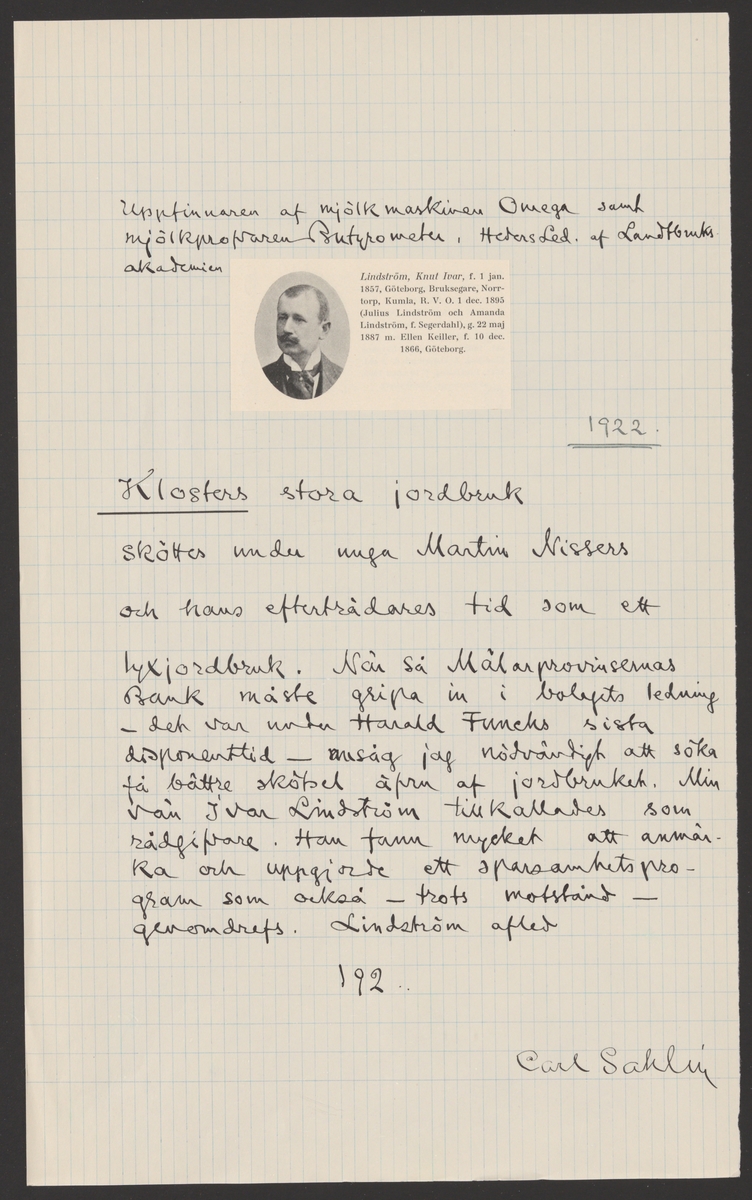 Uppfinnaren af mjölkmaskinen Omega samt
mjölkprofvaren Butyrometer, HedersLed. af Landtbruks-
akademien
Lindström, Knut Ivar, f. 1 jan.
1857, Göteborg, Bruksegare, Norr-
torp, Kumla, R. V. O. 1 dec. 1895
(Julius Lindström och Amanda
Lindström, f. Segerdahl), g. 22 maj
1887 m. Ellen Keiller, f. 10 dec.
1866, Göteborg.
1922.
Klosters stora jordbruk
sköttes under unga Martin Nissers
och hans efterträdares tid som ett
lyxjordbruk. När så Mälarprovinsernas
Bank måste gripa in i bolagets ledning
– det var under Harald Funchs sista
disponenttid – ansåg jag nödvändigt att söka
få bättre skötsel äfven af jordbruket. Min
vän Ivar Lindström tillkallades som
rådgifvare. Han fann mycket att anmär-
ka och uppgjorde ett sparsamhetspro-
gram som också – trots motstånd –
genomdrefs. Lindström afled
192..
Carl Sahlin